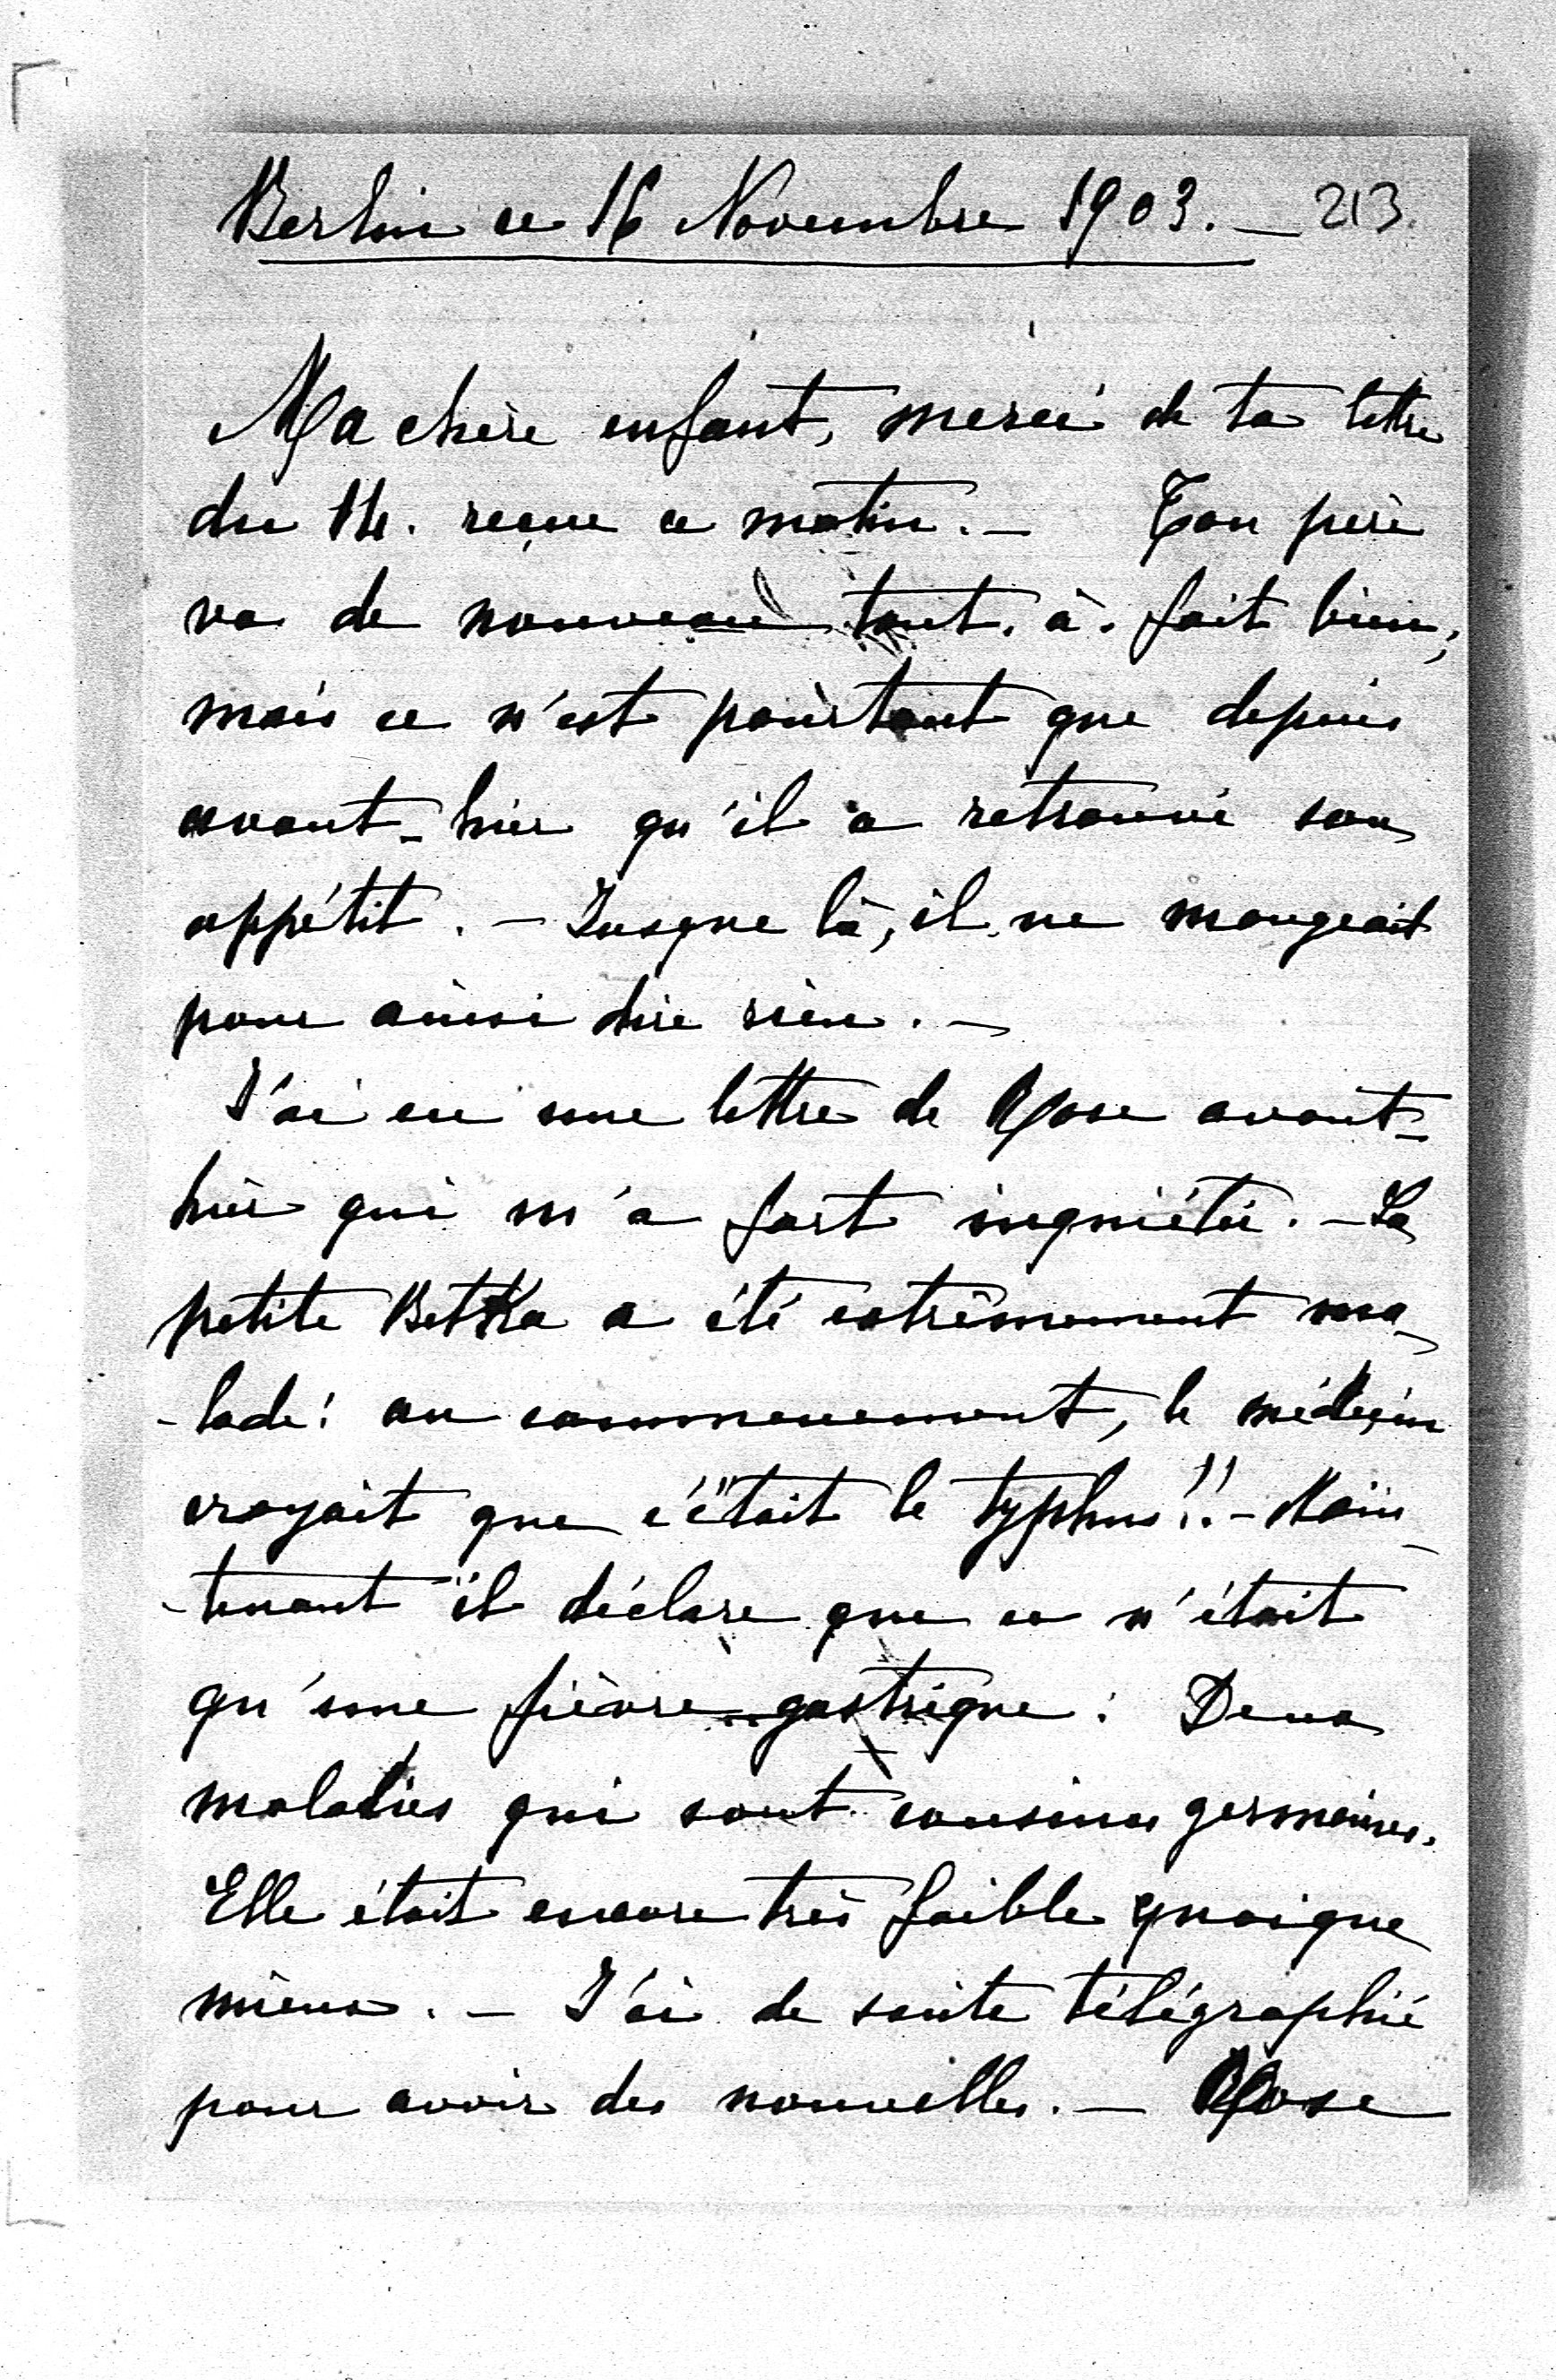 Berlin ce 16 Novembre 1903. — 213.
Ma chère enfant, merci de ta lettre
du 14. reçue ce matin. — Ton père
va de nouveau tout. à. fait bien;
mais ce n'est pourtant que depuis
avant-hier qu'il a retrouvé son
appétit. — Jusque là, il ne mangeait
pour ainsi dire rien. —
J'ai eu une lettre de Rose avant-
hier qui m'a fort inquiétée. — La
petite Betka a été extrêmement ma-
-lade: au commencement, le médecin
croyait que c'était le typhus!! — Main-
-tenant il déclare que ce n'était
qu'une fièvre gastrique: Deux
maladies qui sont cousines germaines.
Elle était encore très faible quoique
mieux. — J'ai de suite télégraphié
pour avoir des nouvelles. — Rose